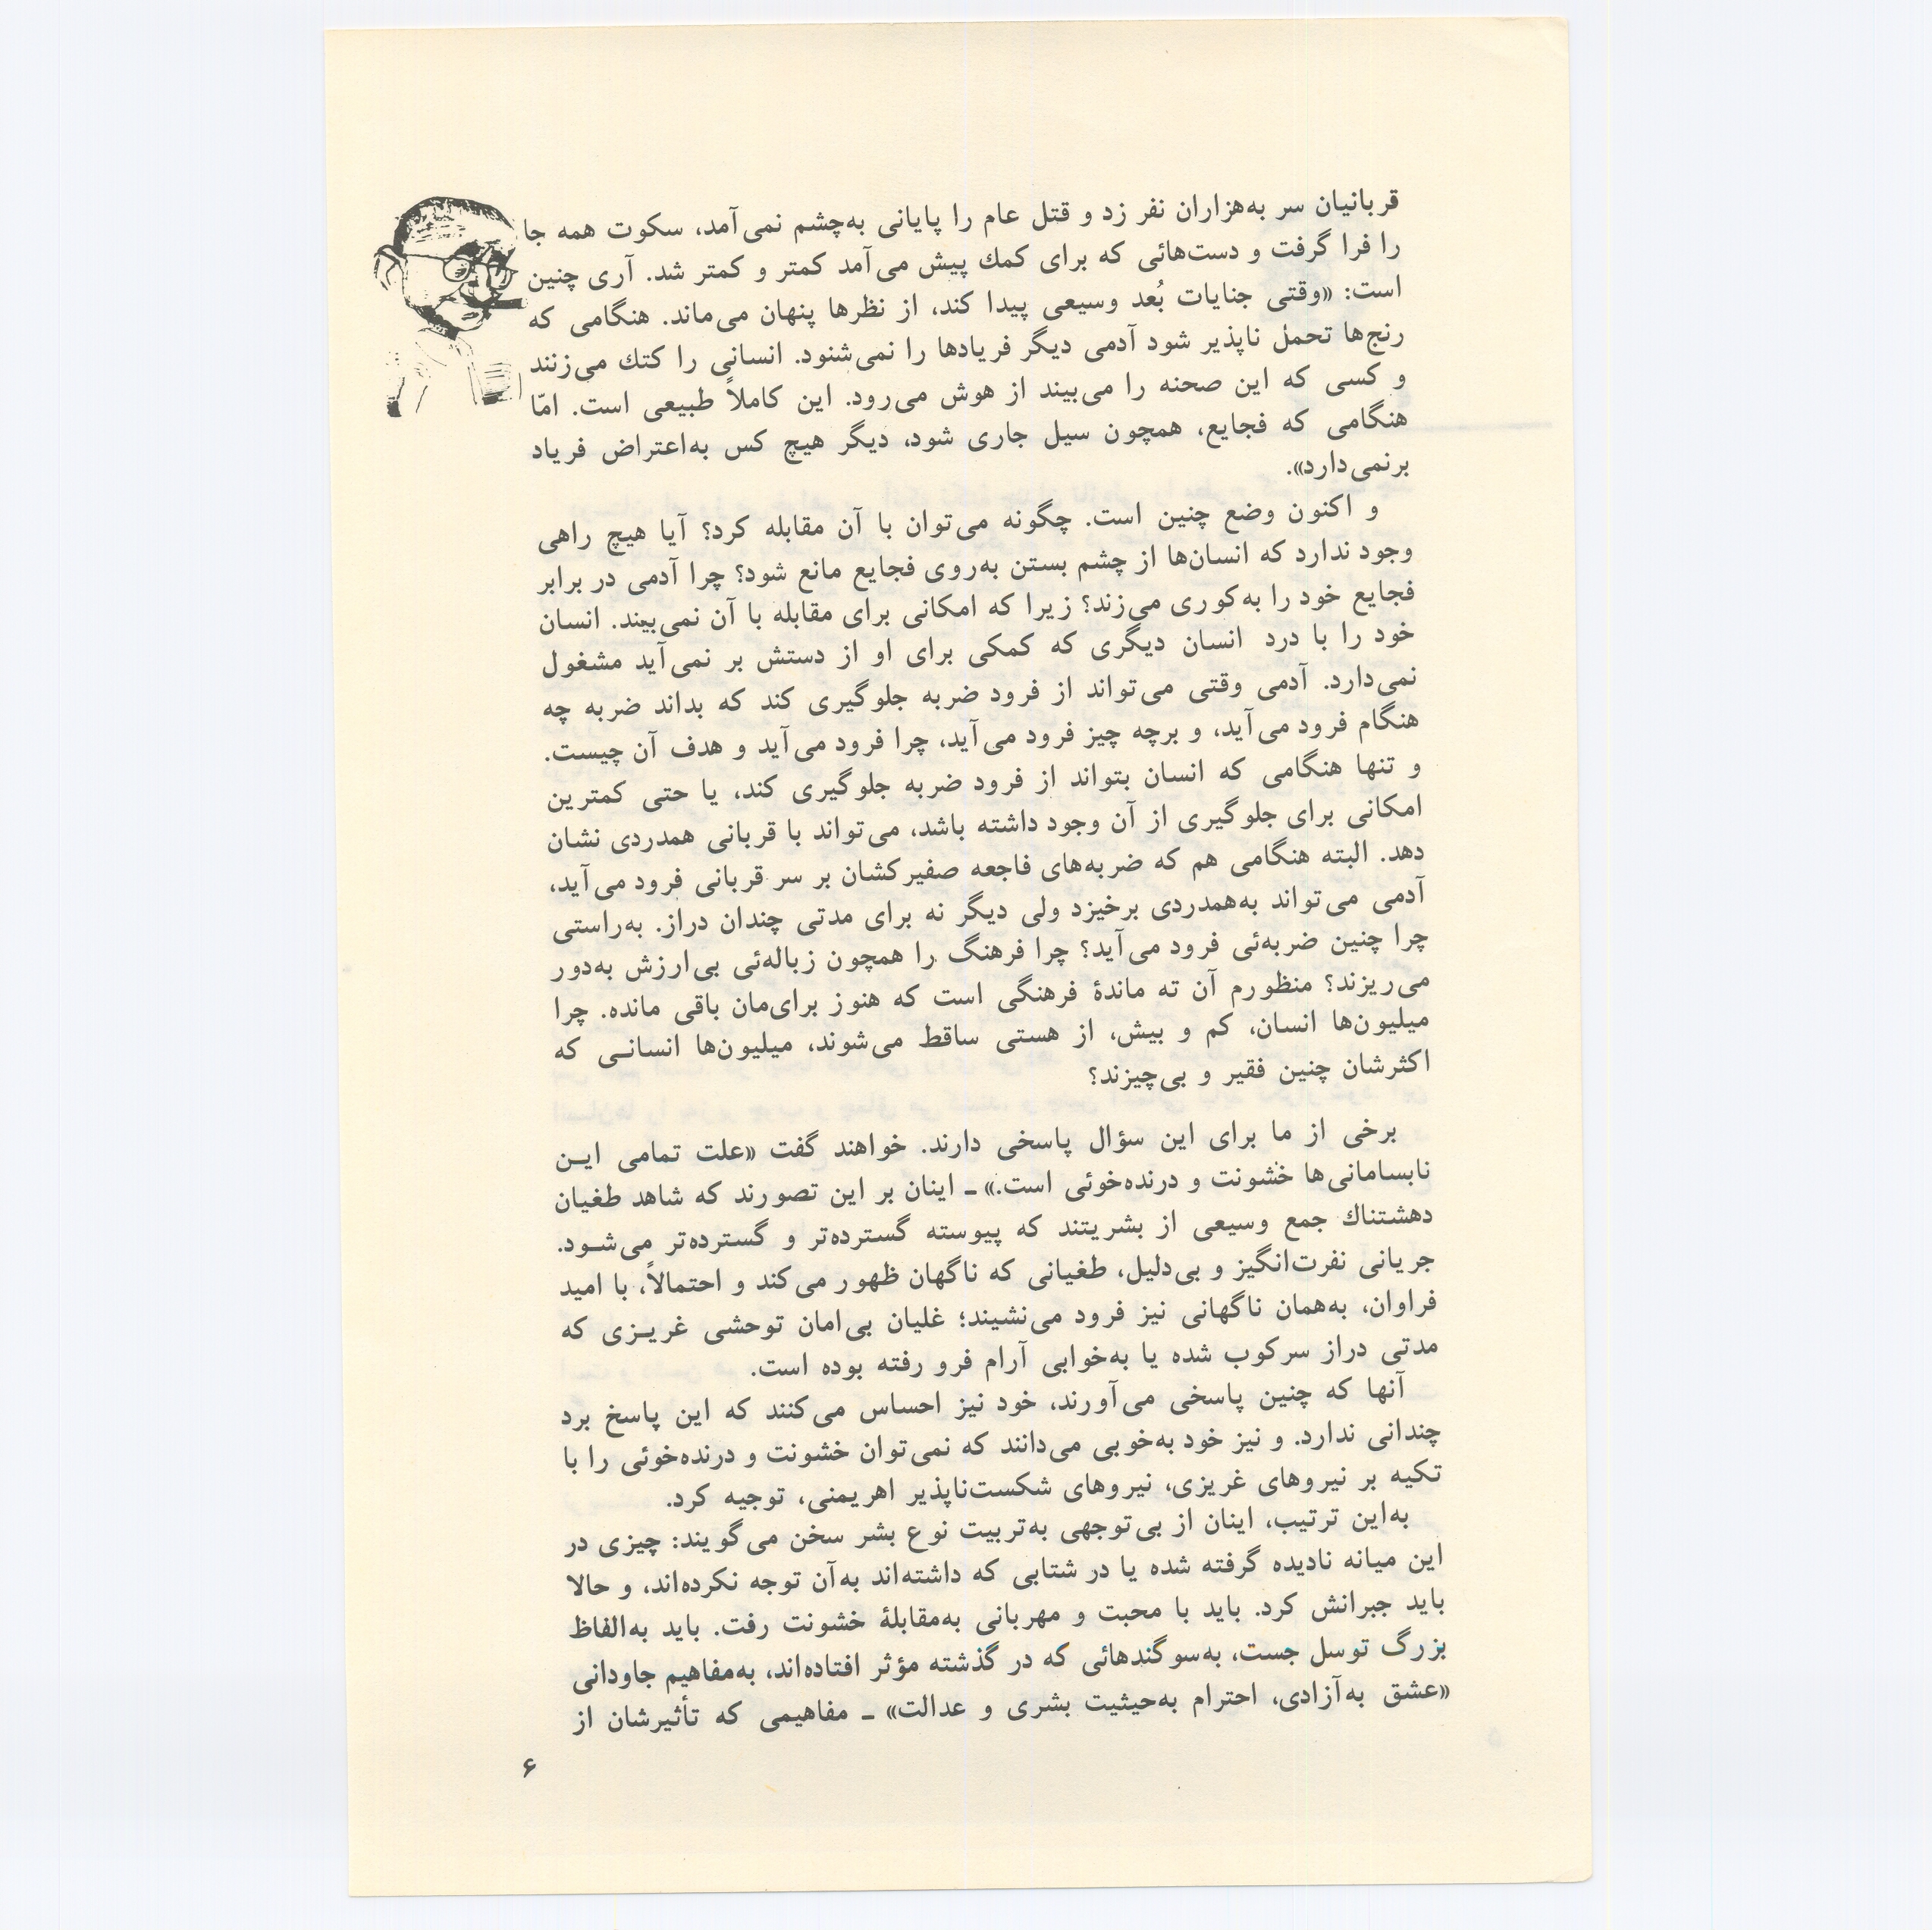 قربانیان سر به‌هزاران نفر زد و قتل عام را پایانی به‌چشم نمی‌آمد، سکوت همه جا
را فرا گرفت و دست‌هائی که برای کمك پیش می‌آمد کمتر و کمتر شد. آری چنین
است: «وقتی جنایات بُعد وسیعی پیدا کند، از نظرها پنهان می‌ماند. هنگامی که
رنج‌ها تحمل ناپذیر شود آدمی دیگر فریادها را نمی‌شنود. انسانی را کتك می‌زنند
و کسی که این صحنه را می‌بیند از هوش می‌رود. این کاملاً طبیعی است. امّا
هنگامی که فجایع، همچون سیل جاری شود، دیگر هیچ کس به‌اعتراض فریاد
برنمی‌دارد».
و اکنون وضع چنین است. چگونه می‌توان با آن مقابله کرد؟ آیا هیچ راهی
وجود ندارد که انسان‌ها از چشم بستن به‌روی فجایع مانع شود؟ چرا آدمی در برابر
فجایع خود را به‌کوری می‌زند؟ زیرا که امکانی برای مقابله با آن نمی‌بیند. انسان
خود را با درد انسان دیگری که کمکی برای او از دستش بر نمی‌آید مشغول
نمی‌دارد. آدمی وقتی می‌تواند از فرود ضربه جلوگیری کند که بداند ضربه چه
هنگام فرود می‌آید، و برچه چیز فرود می‌آید، چرا فرود می‌آید و هدف آن چیست.
و تنها هنگامی که انسان بتواند از فرود ضربه جلوگیری کند، یا حتی کمترین
امکانی برای جلوگیری از آن وجود داشته باشد، می‌تواند با قربانی همدردی نشان
دهد. البته هنگامی هم که ضربه‌های فاجعه صفیرکشان بر سر قربانی فرود می‌آید،
آدمی می‌تواند به‌همدردی برخیزد ولی دیگر نه برای مدتی چندان دراز. به‌راستی
چرا چنین ضربه‌ئی فرود می‌آید؟ چرا فرهنگ را همچون زباله‌ئی بی‌ارزش به‌دور
می‌ریزند؟ منظورم آن ته ماندهٔ فرهنگی است که هنوز برای‌مان باقی مانده. چرا
میلیون‌ها انسان، کم و بیش، از هستی ساقط می‌شوند، میلیون‌ها انسانی که
اکثرشان چنین فقیر و بی‌چیزند؟
برخی از ما برای این سؤال پاسخی دارند. خواهند گفت «علت تمامی این
نابسامانی‌ها خشونت و درنده‌خوئی است.» ـ اینان بر این تصورند که شاهد طغیان
دهشتناك جمع وسیعی از بشریتند که پیوسته گسترده‌تر و گسترده‌تر می‌شود.
جریانی نفرت‌انگیز و بی‌دلیل، طغیانی که ناگهان ظهور می‌کند و احتمالاً، با امید
فراوان، به‌همان ناگهانی نیز فرود می‌نشیند؛ غلیان بی‌امان توحشی غریزی که
مدتی دراز سرکوب شده یا به‌خوابی آرام فرو رفته بوده است.
آنها که چنین پاسخی می‌آورند، خود نیز احساس می‌کنند که این پاسخ برد
چندانی ندارد. و نیز خود به‌خوبی می‌دانند که نمی‌توان خشونت و درنده‌خوئی را با
تکیه بر نیروهای غریزی، نیروهای شکست‌ناپذیر اهریمنی، توجیه کرد.
به‌این ترتیب، اینان از بی‌توجهی به‌تربیت نوع بشر سخن می‌گویند: چیزی در
این میانه نادیده گرفته شده یا در شتابی که داشته‌اند به‌آن توجه نکرده‌اند، و حالا
باید جبرانش کرد. باید با محبت و مهربانی به‌مقابلهٔ خشونت رفت. باید به‌الفاظ
بزرگ توسل جست، به‌سوگندهائی که در گذشته مؤثر افتاده‌اند، به‌مفاهیم جاودانی
«عشق به‌آزادی، احترام به‌حیثیت بشری و عدالت» ـ مفاهیمی که تأثیرشان از
۶